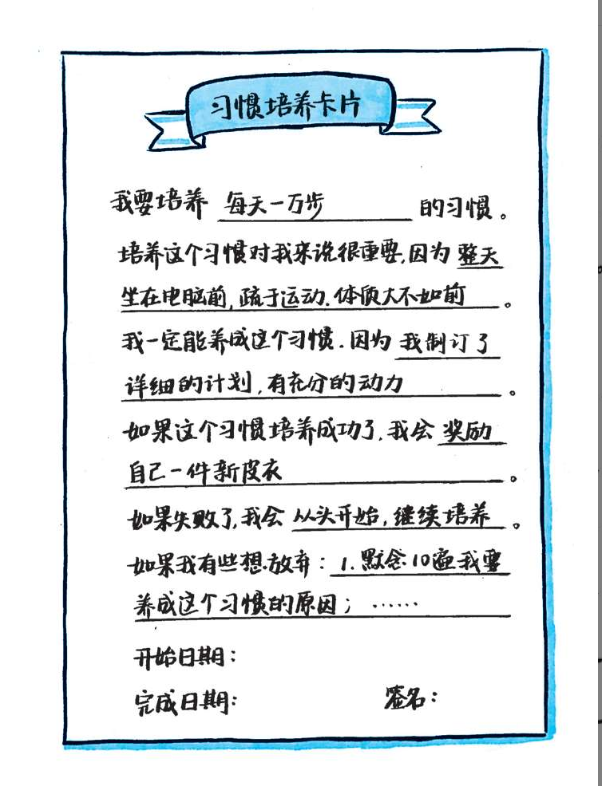 习惯培养卡片
我要培养 每天一万步 的习惯。
培养这个习惯对我来说很重要,因为 整天
坐在电脑前,疏于运动.体质大不如前。
我一定能养成这个习惯.因为 我制订了
详细的计划,有充分的动力。
如果这个习惯培养成功了,我会 奖励
自己一件新皮衣。
如果失败了,我会 从头开始,继续培养。
如果我有些想放弃:1.默念10遍我要
养成这个习惯的原因;……
开始日期:
完成日期: 签名: